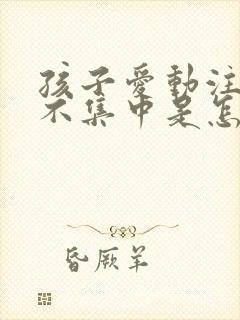 孩子愛動注
不集中是怎
昏厥羊